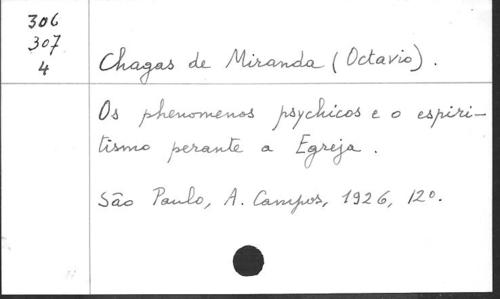 306
307
4
Chagas de Miranda (Octavio).
Os phenomenos psychicos e o espiri-
tismo perante a Egreja.
São Paulo, A. Campos, 1926, 12o.